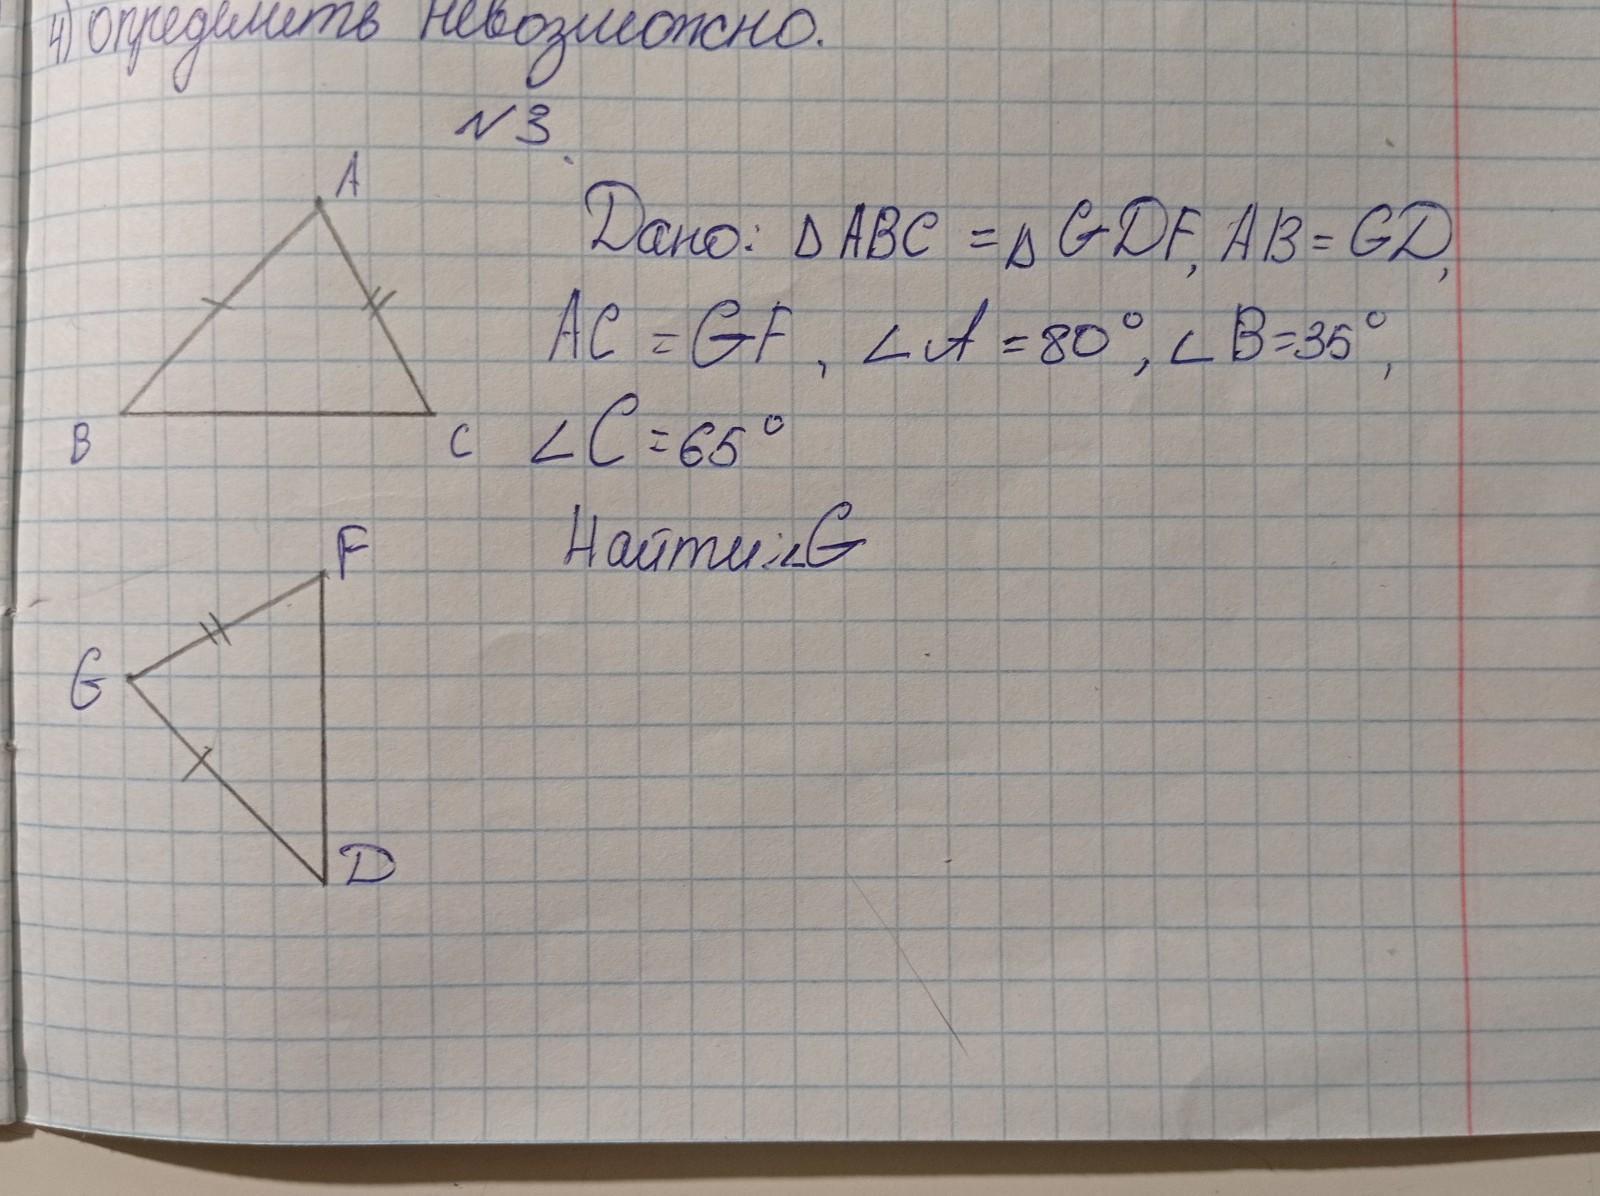 4) определить невозможно.
№3.
A
Дано: Δ ABC = Δ GDF, AB = GD,
AC = GF, ∠A = 80°, ∠B=35°,
B
C
∠C = 65°
Найти: ∠G
F
G
D